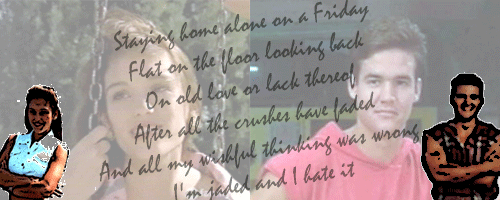 Staying home alone on a Friday
Flat on the floor looking back
On old love or lack thereof
After all the crushes have faded
And all my wishful thinking was wrong
I'm jaded and I hate it